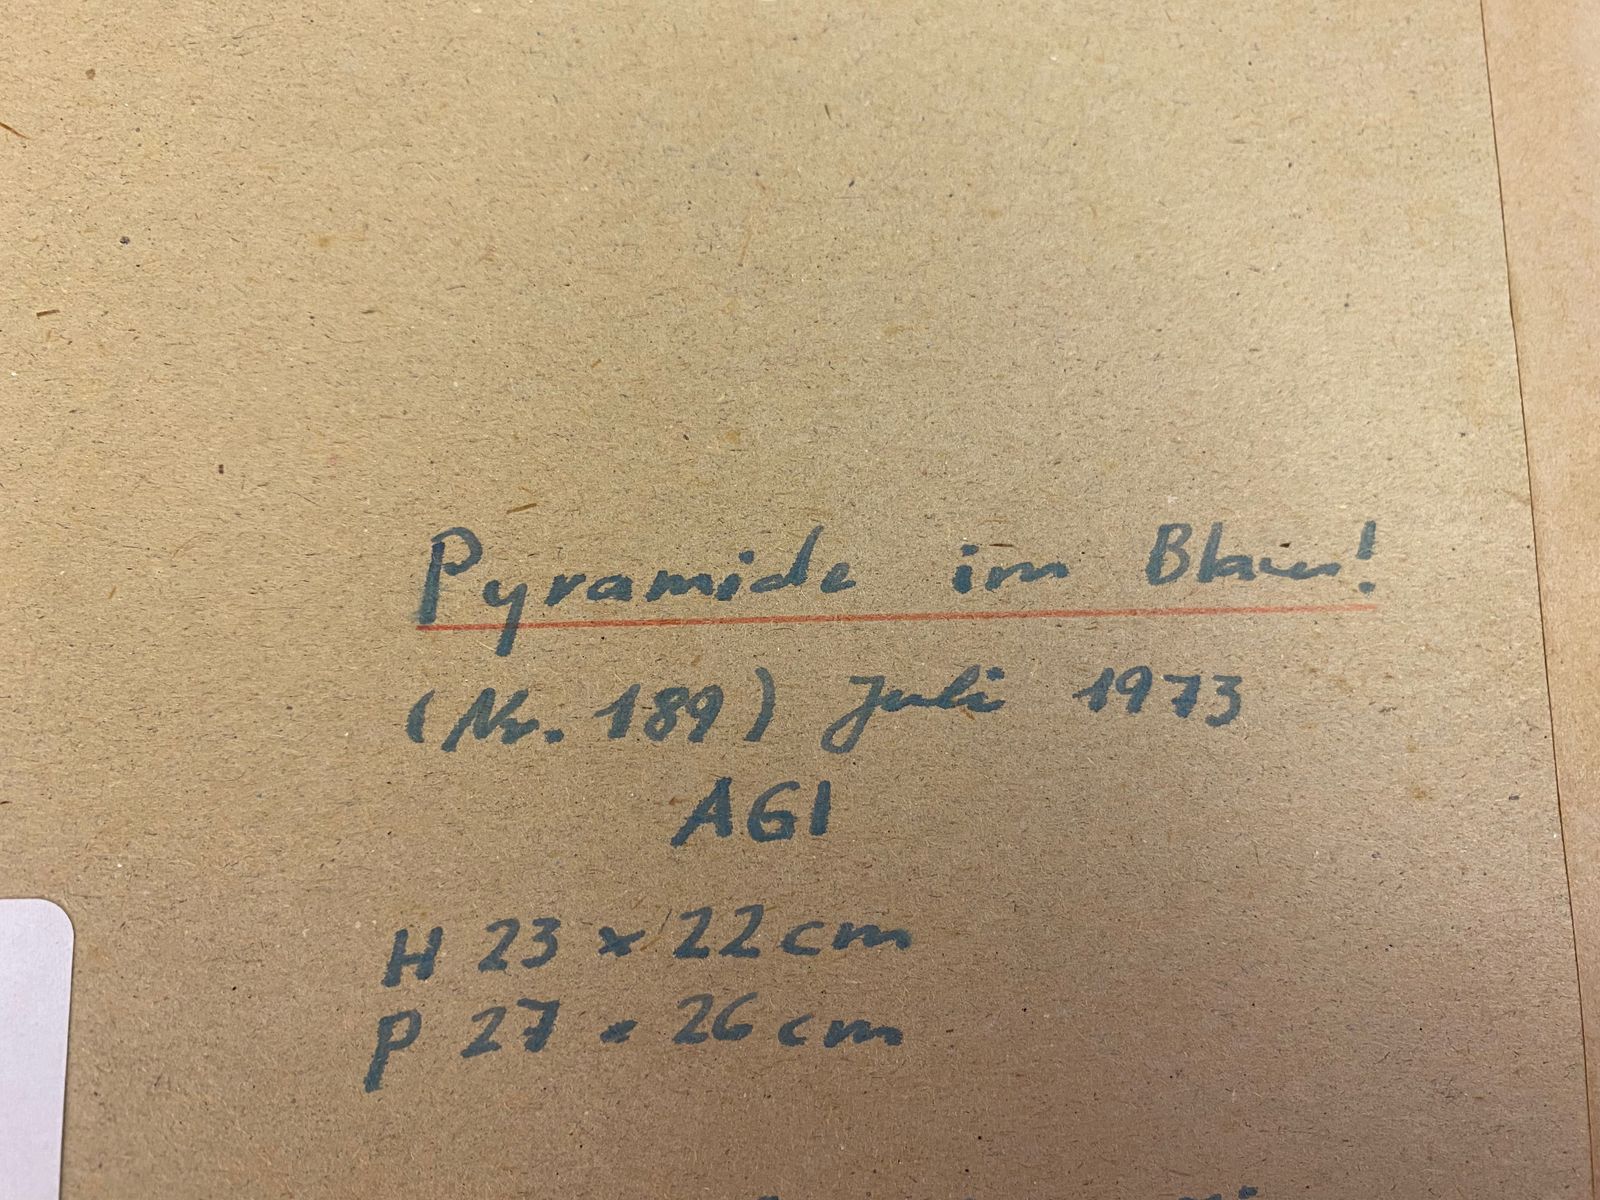 Pyramide im Blauen!
(Nr. 189) Juli 1973
AGI
H 23 x 22 cm
P 27 x 26 cm